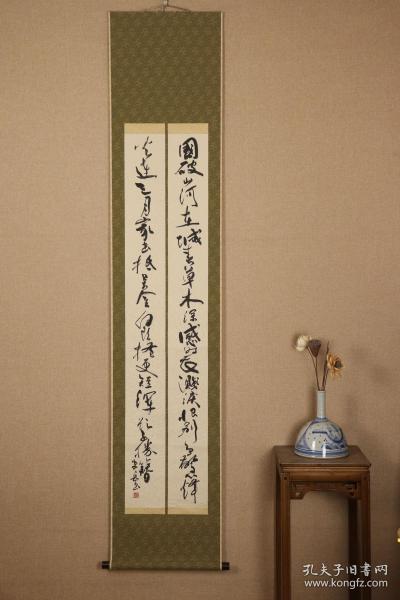 國破山河在城春草木深感時花濺淚恨別鳥驚心烽
火連三月家書抵万金白頭搔更短渾欲不勝簪
孔夫子旧书网
www.kongfz.com